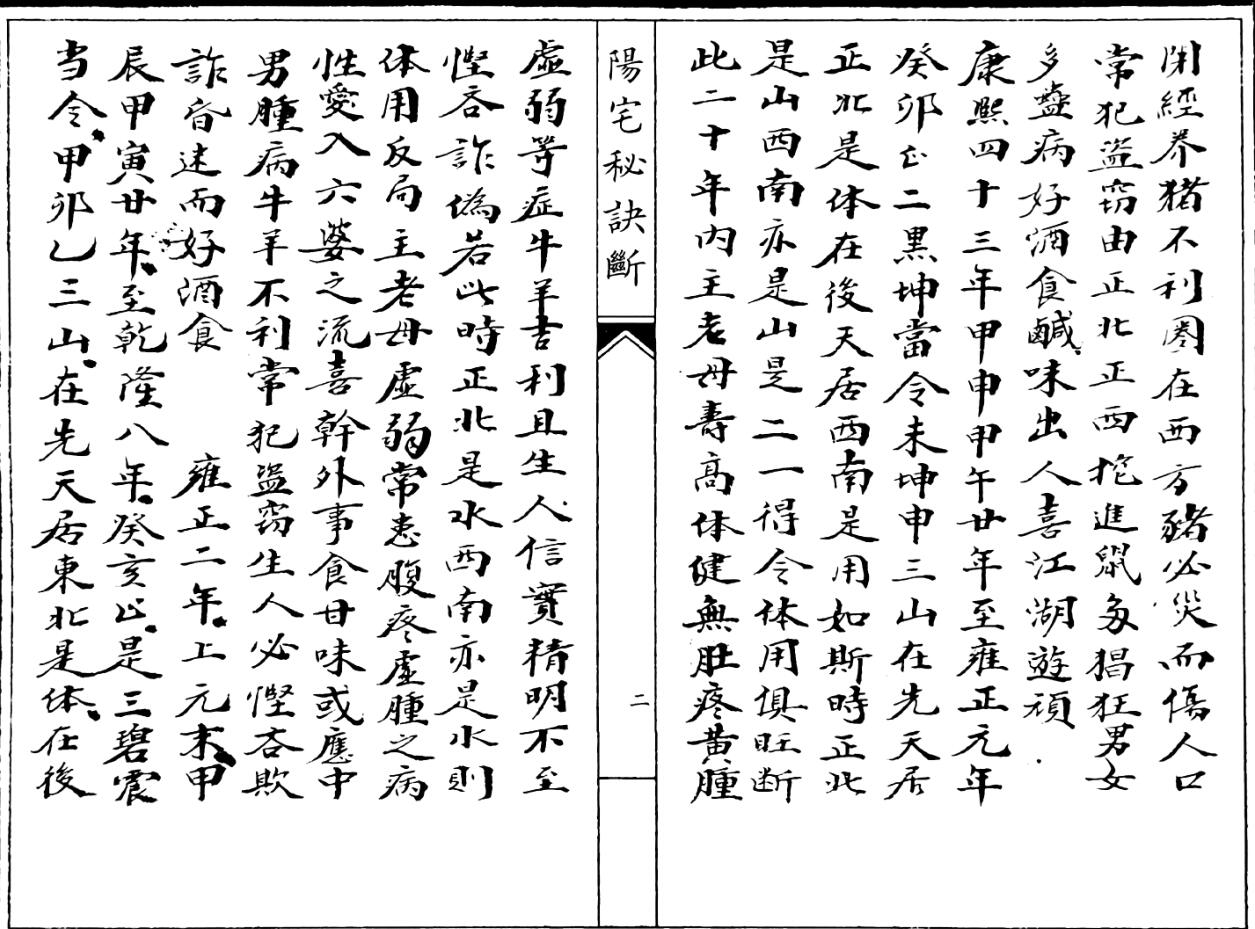 閉經养猪不利圈在西方豬必災而傷人口
常犯盜窃由正北正西挖進鼠多猖狂男女
多蠱病好酒食鹹味出人喜江湖遊頑
康熙四十三年甲申甲午廿年至雍正元年
癸卯止二黑坤當令未坤申三山在先天居
正北是体在後天居西南是用如斯時正北
是山西南亦是山是二一得令体用俱旺断
此二十年内主老母壽高体健無肚疼黄腫
陽宅秘訣斷
二
虛弱等症牛羊吉利且生人信實精明不至
慳吝詐偽若此時正北是水西南亦是水則
体用反局主老母虛弱常患腹疼虛腫之病
性愛入六婆之流喜幹外事食甘味或應中
男腫病牛羊不利常犯盜窃生人必慳吝欺
詐昏迷而好酒食 雍正二年上元末甲
辰甲寅廿年至乾隆八年癸亥止是三碧震
当令甲卯乙三山在先天居東北是体在後